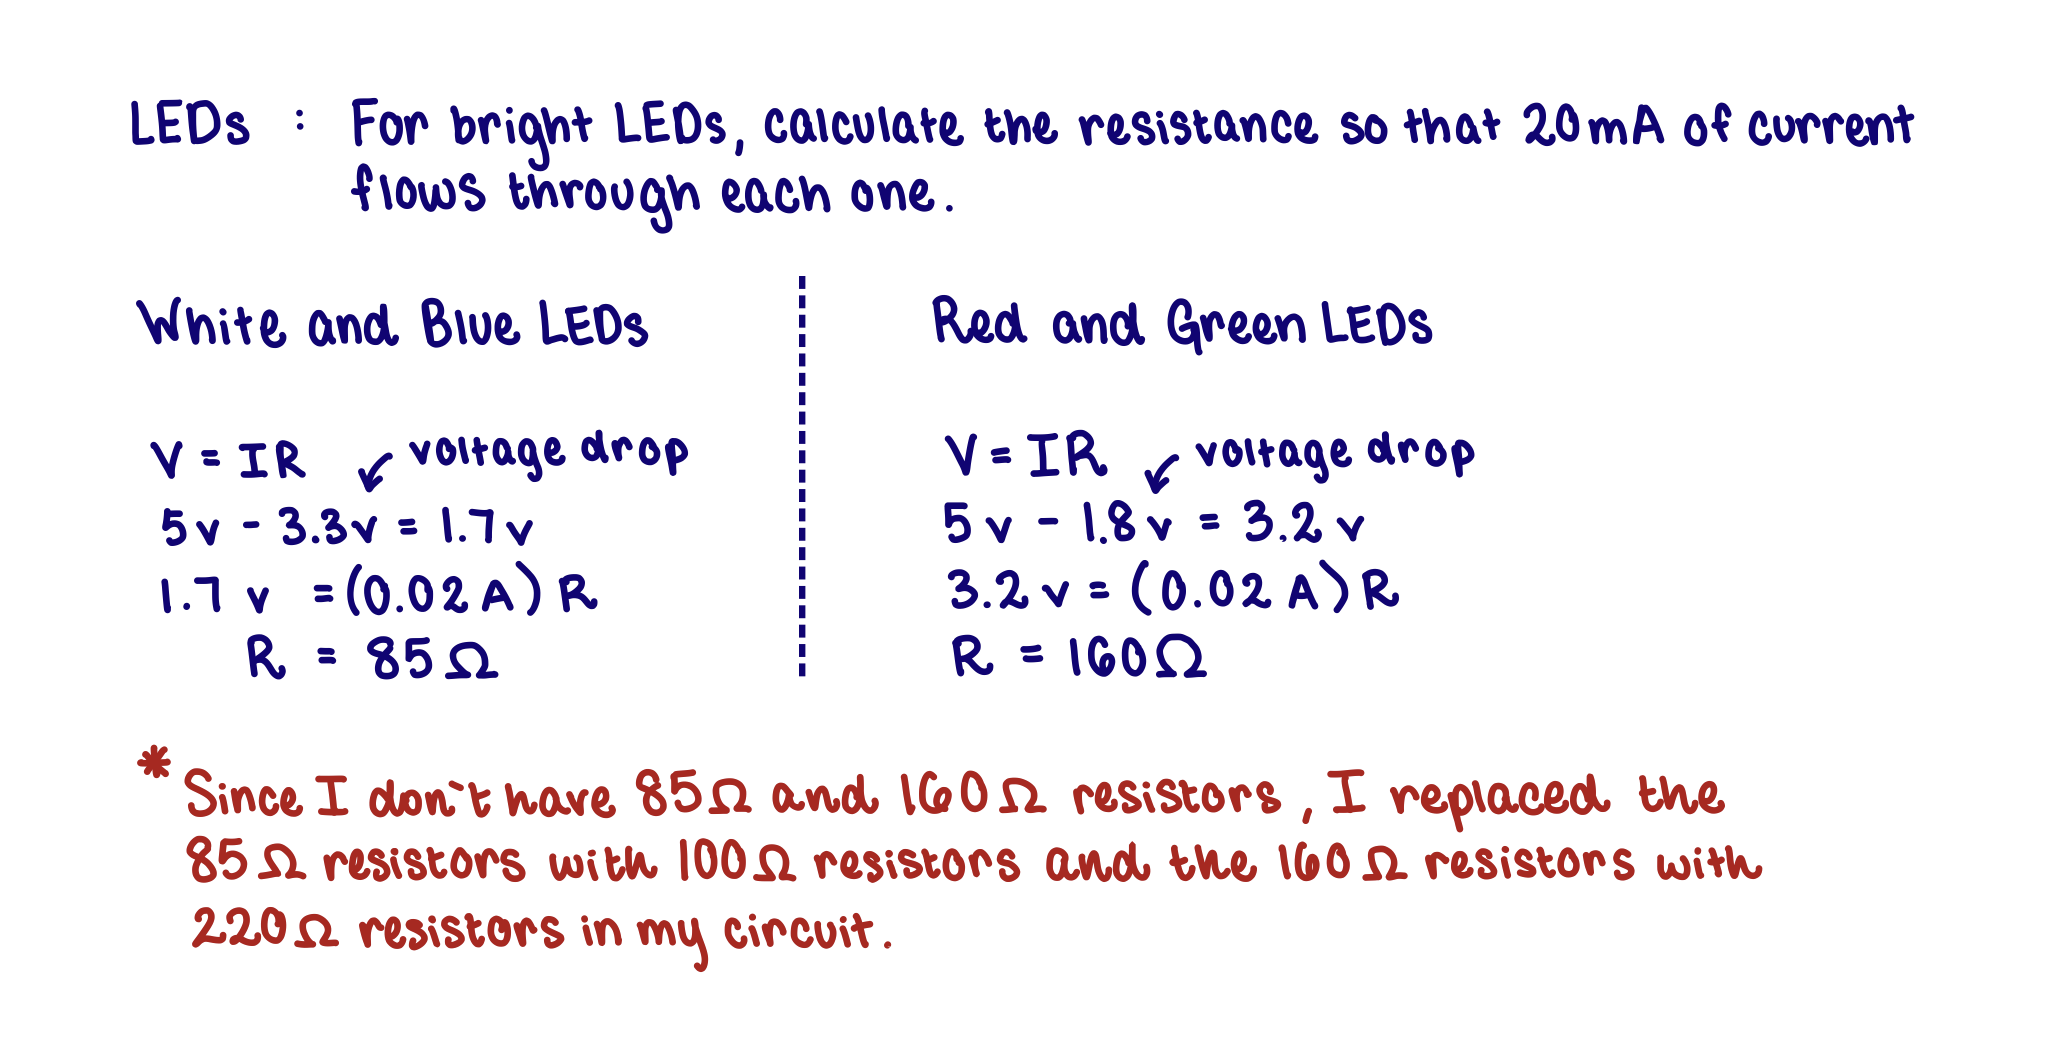 LEDs : For bright LEDs, calculate the resistance so that 20mA of current
flows through each one.
White and Blue LEDs
V = IR
voltage drop
5v - 3.3v = 1.7v
1.7 v = (0.02 A) R
R = 85Ω
Red and Green LEDs
V = IR
voltage drop
5v - 1.8v = 3.2v
3.2 v = (0.02 A) R
R = 160Ω
* Since I don`t have 85Ω and 160Ω resistors, I replaced the
85Ω resistors with 100Ω resistors and the 160Ω resistors with
220Ω resistors in my circuit.